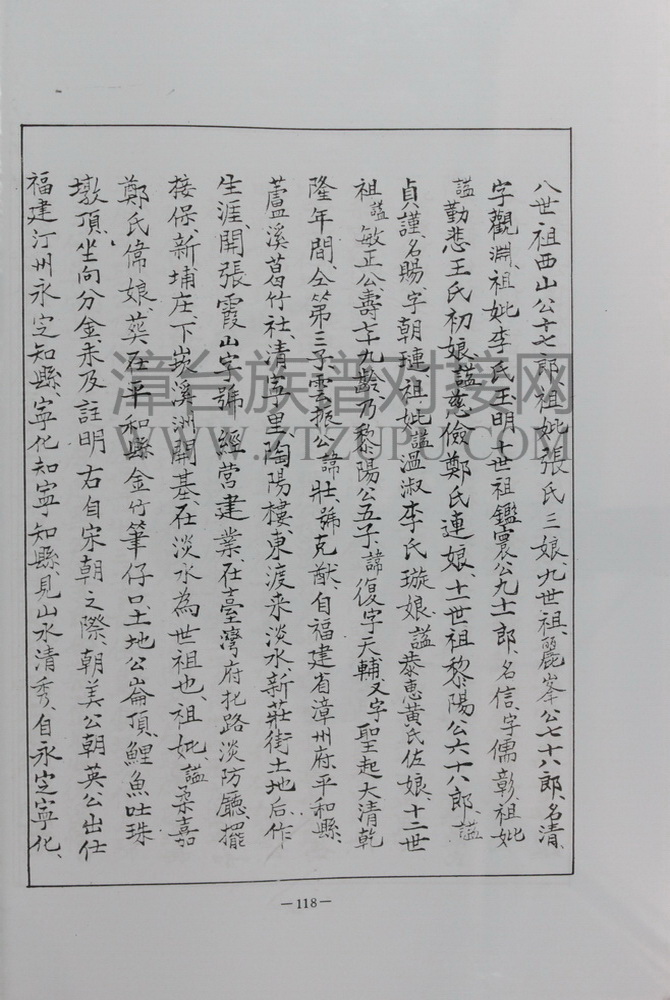 八世祖西山公十七郎、祖妣張氏三娘、九世祖、麗峯公七十八郎、名清、
字觀淵、祖妣李氏玉明、十世祖鑑寰公九十一郎、名信、字儒彰、祖妣
謚勤悲王氏初娘、謚慈儉鄭氏連娘、十一世祖黎陽公六十八郎、謚
貞謹、名賜、字朝璉、祖妣謚溫淑李氏璇娘、謚恭惠黃氏佐娘、十二世
祖、謚敏正公、壽七十九齡、乃黎陽公五子、諱復字天輔、又字聖起大清乾
隆年間、仝第三子、雲振公、諱壯、號克猷、自福建省漳州府、平和縣、
蘆溪葛竹社、清寧里、陶陽樓、東渡来淡水新莊街土地后、作
生涯、開張霞山字號經營建業、在臺灣府北路淡防廳、擺
接保、新埔庄、下崁溪洲開基、在淡水為世祖也、祖妣、謚柔嘉
鄭氏偉娘、葬在平和縣金竹筆仔口、土地公崙頂、鯉魚吐珠
墩頂、坐向分金、未及註明右自宋朝之際、朝美公朝英公出仕
福建汀州永定知縣、寧化知寧知縣、見山水清秀、自永定寧化、
—118—
漳台族谱对接网
WWW.ZTZUPU.COM